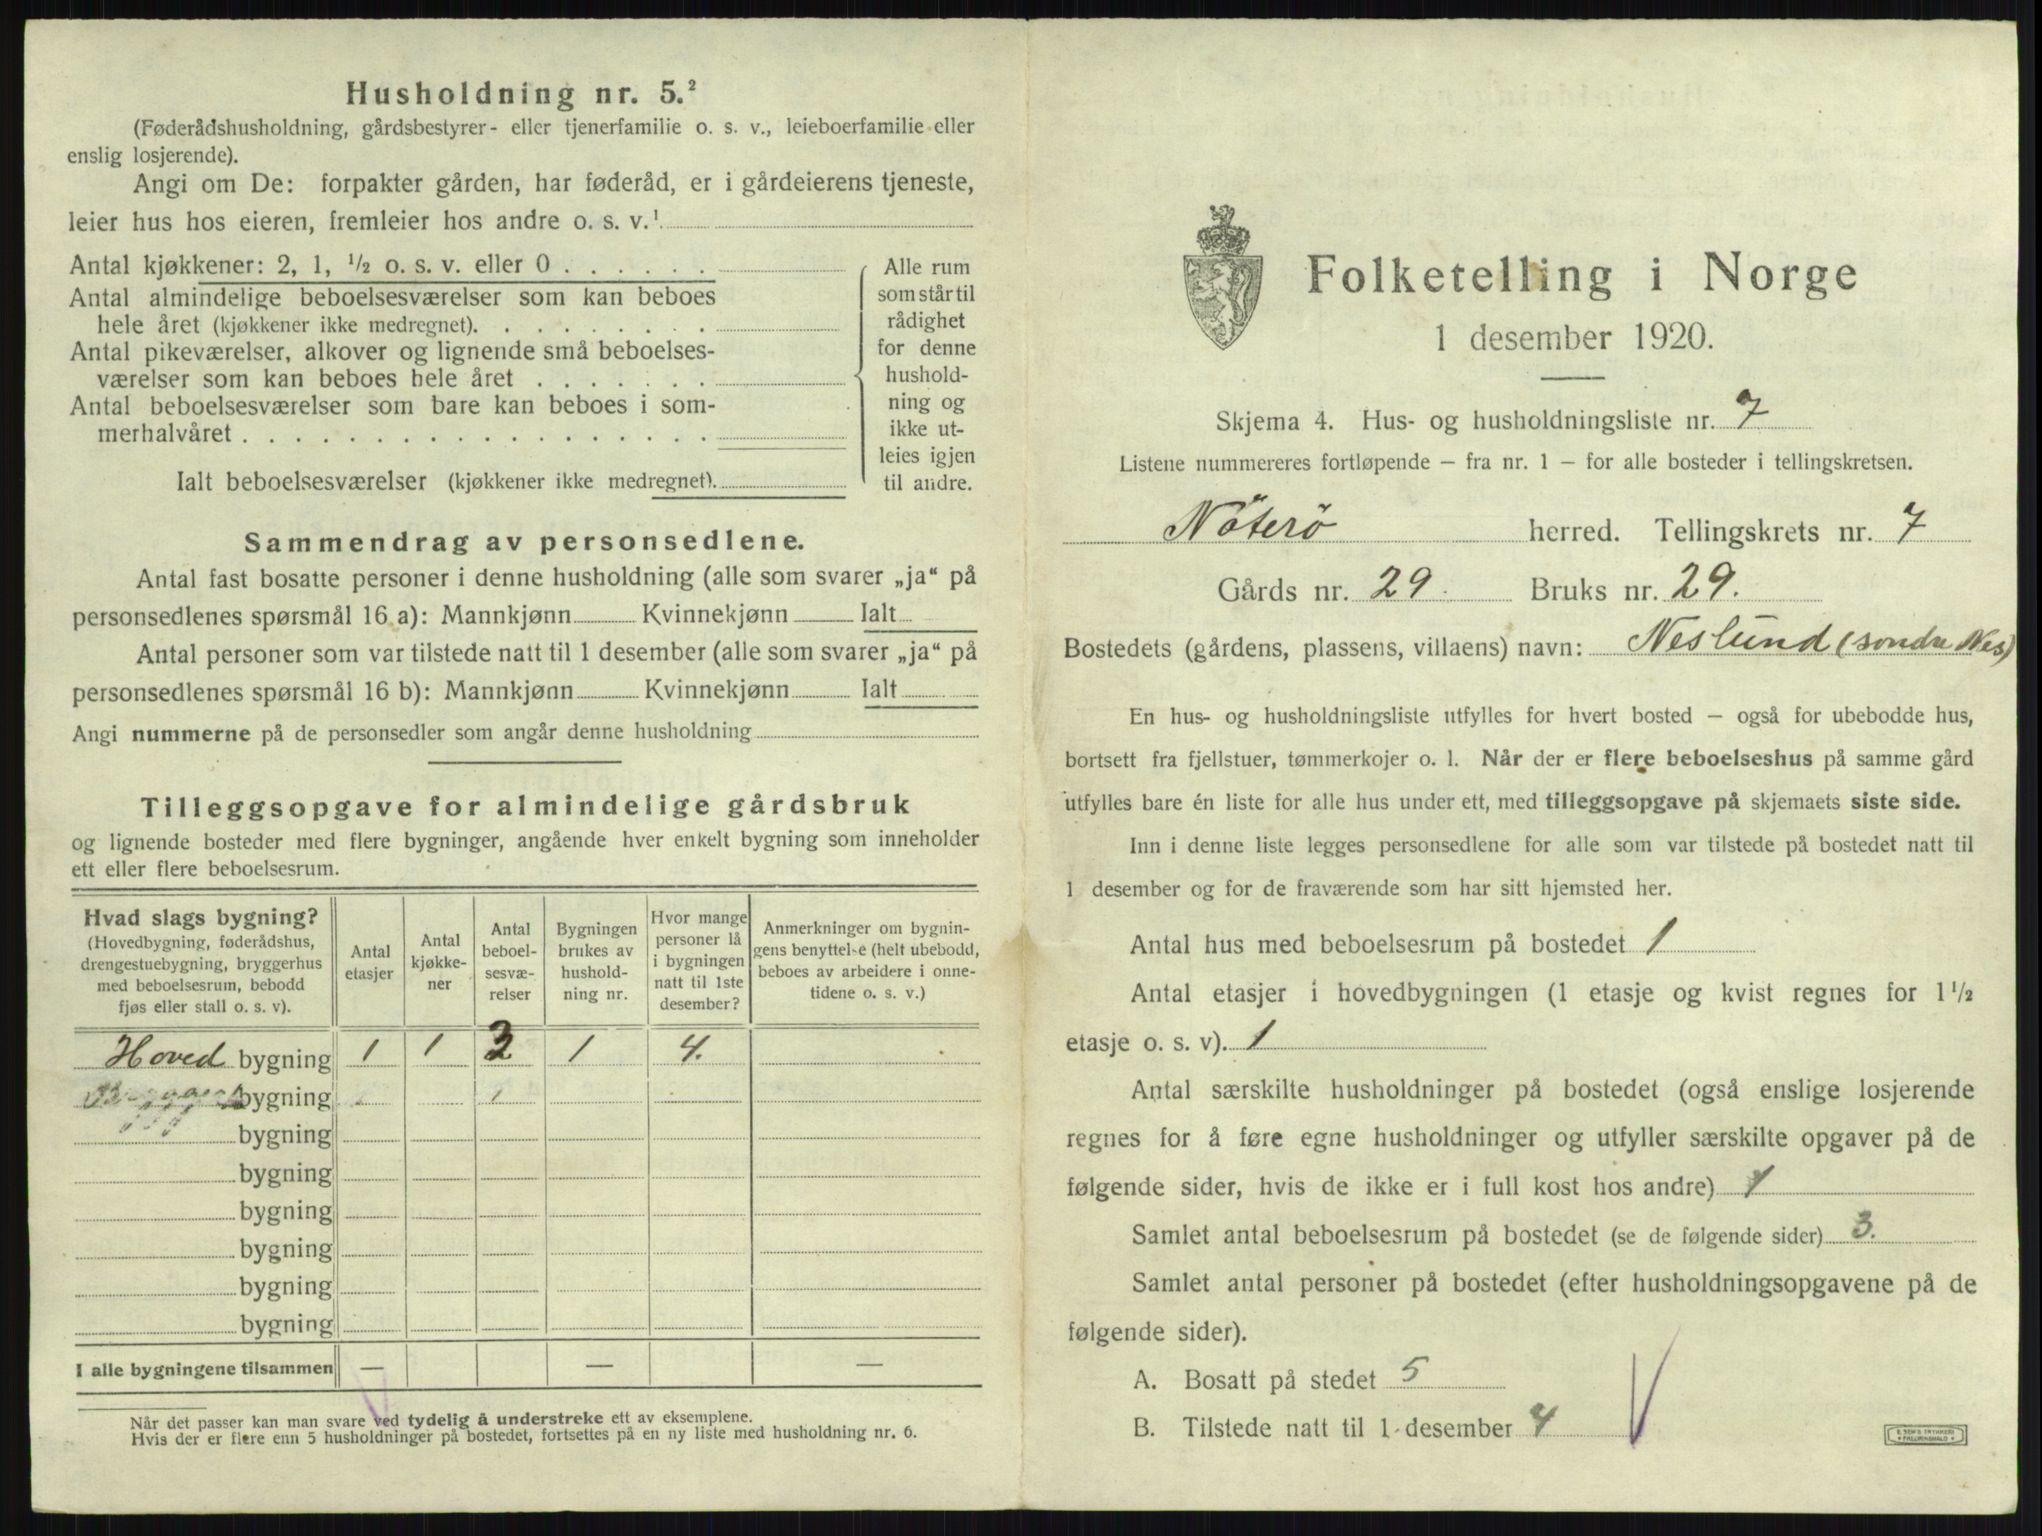 Husholdning nr. 5.²
(Føderådshusholdning, gårdsbestyrer- eller tjenerfamilie o. s. v., leieboerfamilie eller
enslig losjerende).
Angi om De: forpakter gården, har føderåd, er i gårdeierens tjeneste,
leier hus hos eieren, fremleier hos andre o. s. v.¹
Antal kjøkkener: 2, 1, ½ o. s. v. eller 0 . . . . . .
Antal almindelige beboelsesværelser som kan beboes
hele året (kjøkkener ikke medregnet). . . . . . . . .
Antal pikeværelser, alkover og lignende små beboelses-
værelser som kan beboes hele året . . . . . . .
Antal beboelsesværelser som bare kan beboes i som-
merhalvåret . . . . . . . . . . . . . . . . . .
Ialt beboelsesværelser (kjøkkener ikke medregnet).
Alle rum
som står til
rådighet
for denne
hushold-
ning og
ikke ut-
leies igjen
til andre.
Sammendrag av personsedlene.
Antal fast bosatte personer i denne husholdning (alle som svarer „ja“ på
personsedlenes spørsmål 16 a): Mannkjønn Kvinnekjønn Ialt
Antal personer som var tilstede natt til 1 desember (alle som svarer „ja“ på
personsedlenes spørsmål 16 b): Mannkjønn Kvinnekjønn Ialt
Angi nummerne på de personsedler som angår denne husholdning
Tilleggsopgave for almindelige gårdsbruk
og lignende bosteder med flere bygninger, angående hver enkelt bygning som inneholder
ett eller flere beboelsesrum.
Hvad slags bygning?
(Hovedbygning, føderådshus,
drengestuebygning, bryggerhus
med beboelsesrum, bebodd
fjøs eller stall o. s. v).
Antal
etasjer
Antal
kjøkke-
ner
Antal
beboel-
sesvæ-
relser
Bygningen
brukes av
hushold-
ning nr.
Hvor mange
personer lå
i bygningen
natt til 1ste
desember?
Anmerkninger om bygnin-
gens benyttelse (helt ubebodd,
beboes av arbeidere i onne-
tidene o. s. v.)
Hoved bygning 1 1 3 1 4.
bygning
bygning
bygning
bygning
bygning
bygning
bygning
I alle bygningene tilsammen — — —
Når det passer kan man svare ved tydelig å understreke ett av eksemplene.
Hvis der er flere enn 5 husholdninger på bostedet, fortsettes på en ny liste med husholdning nr. 6.
Folketelling i Norge
1 desember 1920.
Skjema 4. Hus- og husholdningsliste nr. 7
Listene nummereres fortløpende – fra nr. 1 – for alle bosteder i tellingskretsen.
Nöterö herred. Tellingskrets nr. 7
Gårds nr. 29. Bruks nr. 29.
Bostedets (gårdens, plassens, villaens) navn: Neslund (söndre Nes)
En hus- og husholdningsliste utfylles for hvert bosted – også for ubebodde hus,
bortsett fra fjellstuer, tømmerkojer o. l. Når der er flere beboelseshus på samme gård
utfylles bare én liste for alle hus under ett, med tilleggsopgave på skjemaets siste side.
Inn i denne liste legges personsedlene for alle som var tilstede på bostedet natt til
1 desember og for de fraværende som har sitt hjemsted her.
Antal hus med beboelsesrum på bostedet 1
Antal etasjer i hovedbygningen (1 etasje og kvist regnes for 1½
etasje o. s. v). 1
Antal særskilte husholdninger på bostedet (også enslige losjerende
regnes for å føre egne husholdninger og utfyller særskilte opgaver på de
følgende sider, hvis de ikke er i full kost hos andre) 1
Samlet antal beboelsesrum på bostedet (se de følgende sider) 3.
Samlet antal personer på bostedet (efter husholdningsopgavene på de
følgende sider).
A. Bosatt på stedet 5
B. Tilstede natt til 1 desember 4